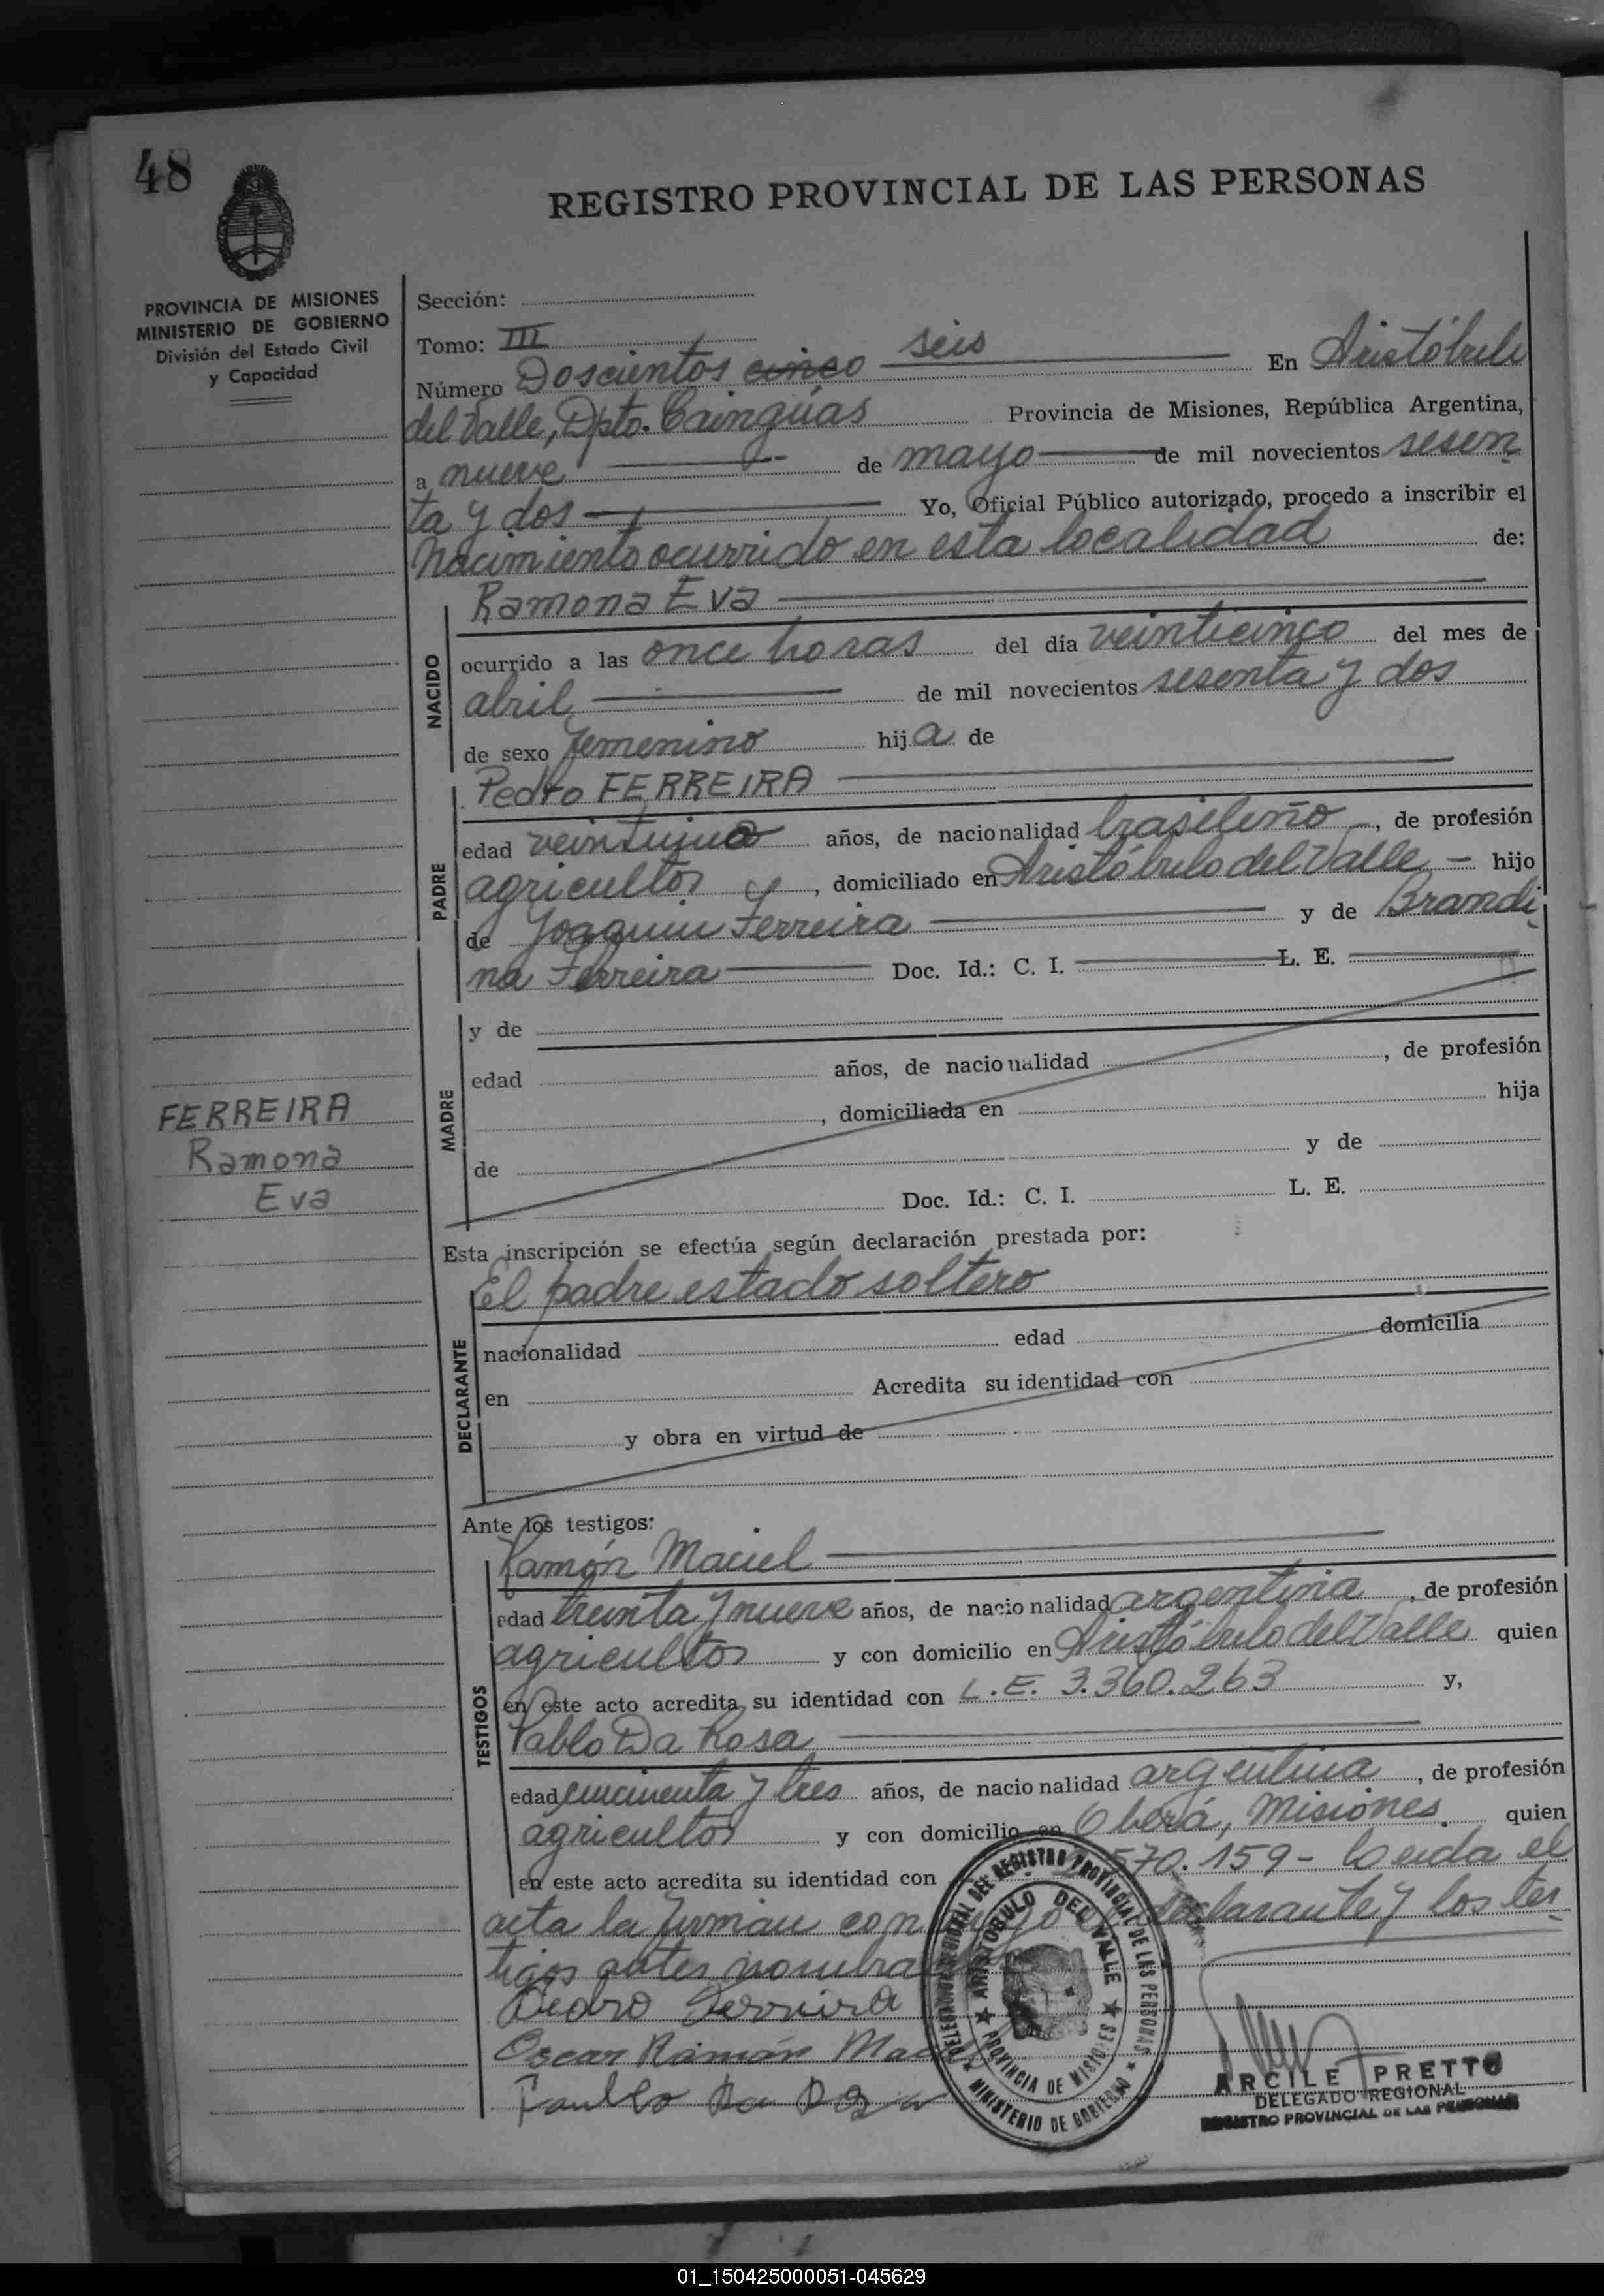 48
REGISTRO PROVINCIAL DE LAS PERSONAS
PROVINCIA DE MISIONES
MINISTERIO DE GOBIERNO
División del Estado Civil
y Capacidad
Sección:
Tomo: III
Número Doscientos cinco seis En Aristóbulo
del Valle, Dpto. Cainguas Provincia de Misiones, República Argentina,
a nueve de mayo de mil novecientos sesen
ta y dos Yo, Oficial Público autorizado, procedo a inscribir el
Nacimiento ocurrido en esta localidad de:
NACIDO
Ramona Eva
ocurrido a las once horas del día veinticinco del mes de
abril de mil novecientos sesenta y dos
de sexo femenino hija de
PADRE
Pedro FERREIRA
edad años, de nacionalidad brasileño, de profesión
agricultor y, domiciliado en Aristóbulo del Valle hijo
de Joaquin Ferreira y de Brandi
na Ferreira Doc. Id.: C. I. L. E.
MADRE
y de
edad años, de nacionalidad , de profesión
, domiciliada en hija
de y de
Doc. Id.: C. I. L. E.
FERREIRA
Ramona
Eva
Esta inscripción se efectúa según declaración prestada por:
El padre estado soltero
DECLARANTE
nacionalidad edad domicilia
en Acredita su identidad con
y obra en virtud de
Ante los testigos:
TESTIGOS
Ramón Maciel
edad treinta y nueve años, de nacionalidad argentina, de profesión
agricultor y con domicilio en Aristóbulo del Valle quien
en este acto acredita su identidad con L.E. 3.360.263 y,
Pablo Da Rosa
edad cincuenta y tres años, de nacionalidad argentina, de profesión
agricultor y con domicilio en Oberá, Misiones. quien
en este acto acredita su identidad con 570.159- Leida el
acta la firman con declarante y los tes
tigos antes nombra
Pedro Ferreira
Oscar Ramón
Da
DEL REGISTRO PROVINCIAL DE LAS PERSONAS
MINISTERIO DE GOBIERNO
ARISTOBULO DEL VALLE
PROVINCIA DE MISIONES
ARCILE PRETTO
DELEGADO REGIONAL
REGISTRO PROVINCIAL DE LAS PERSONAS
01_150425000051-045629